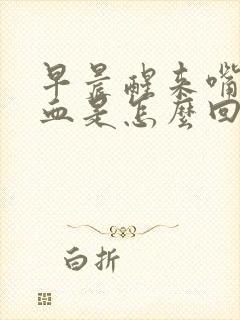 早晨醒来嘴
血是怎麼回
白折